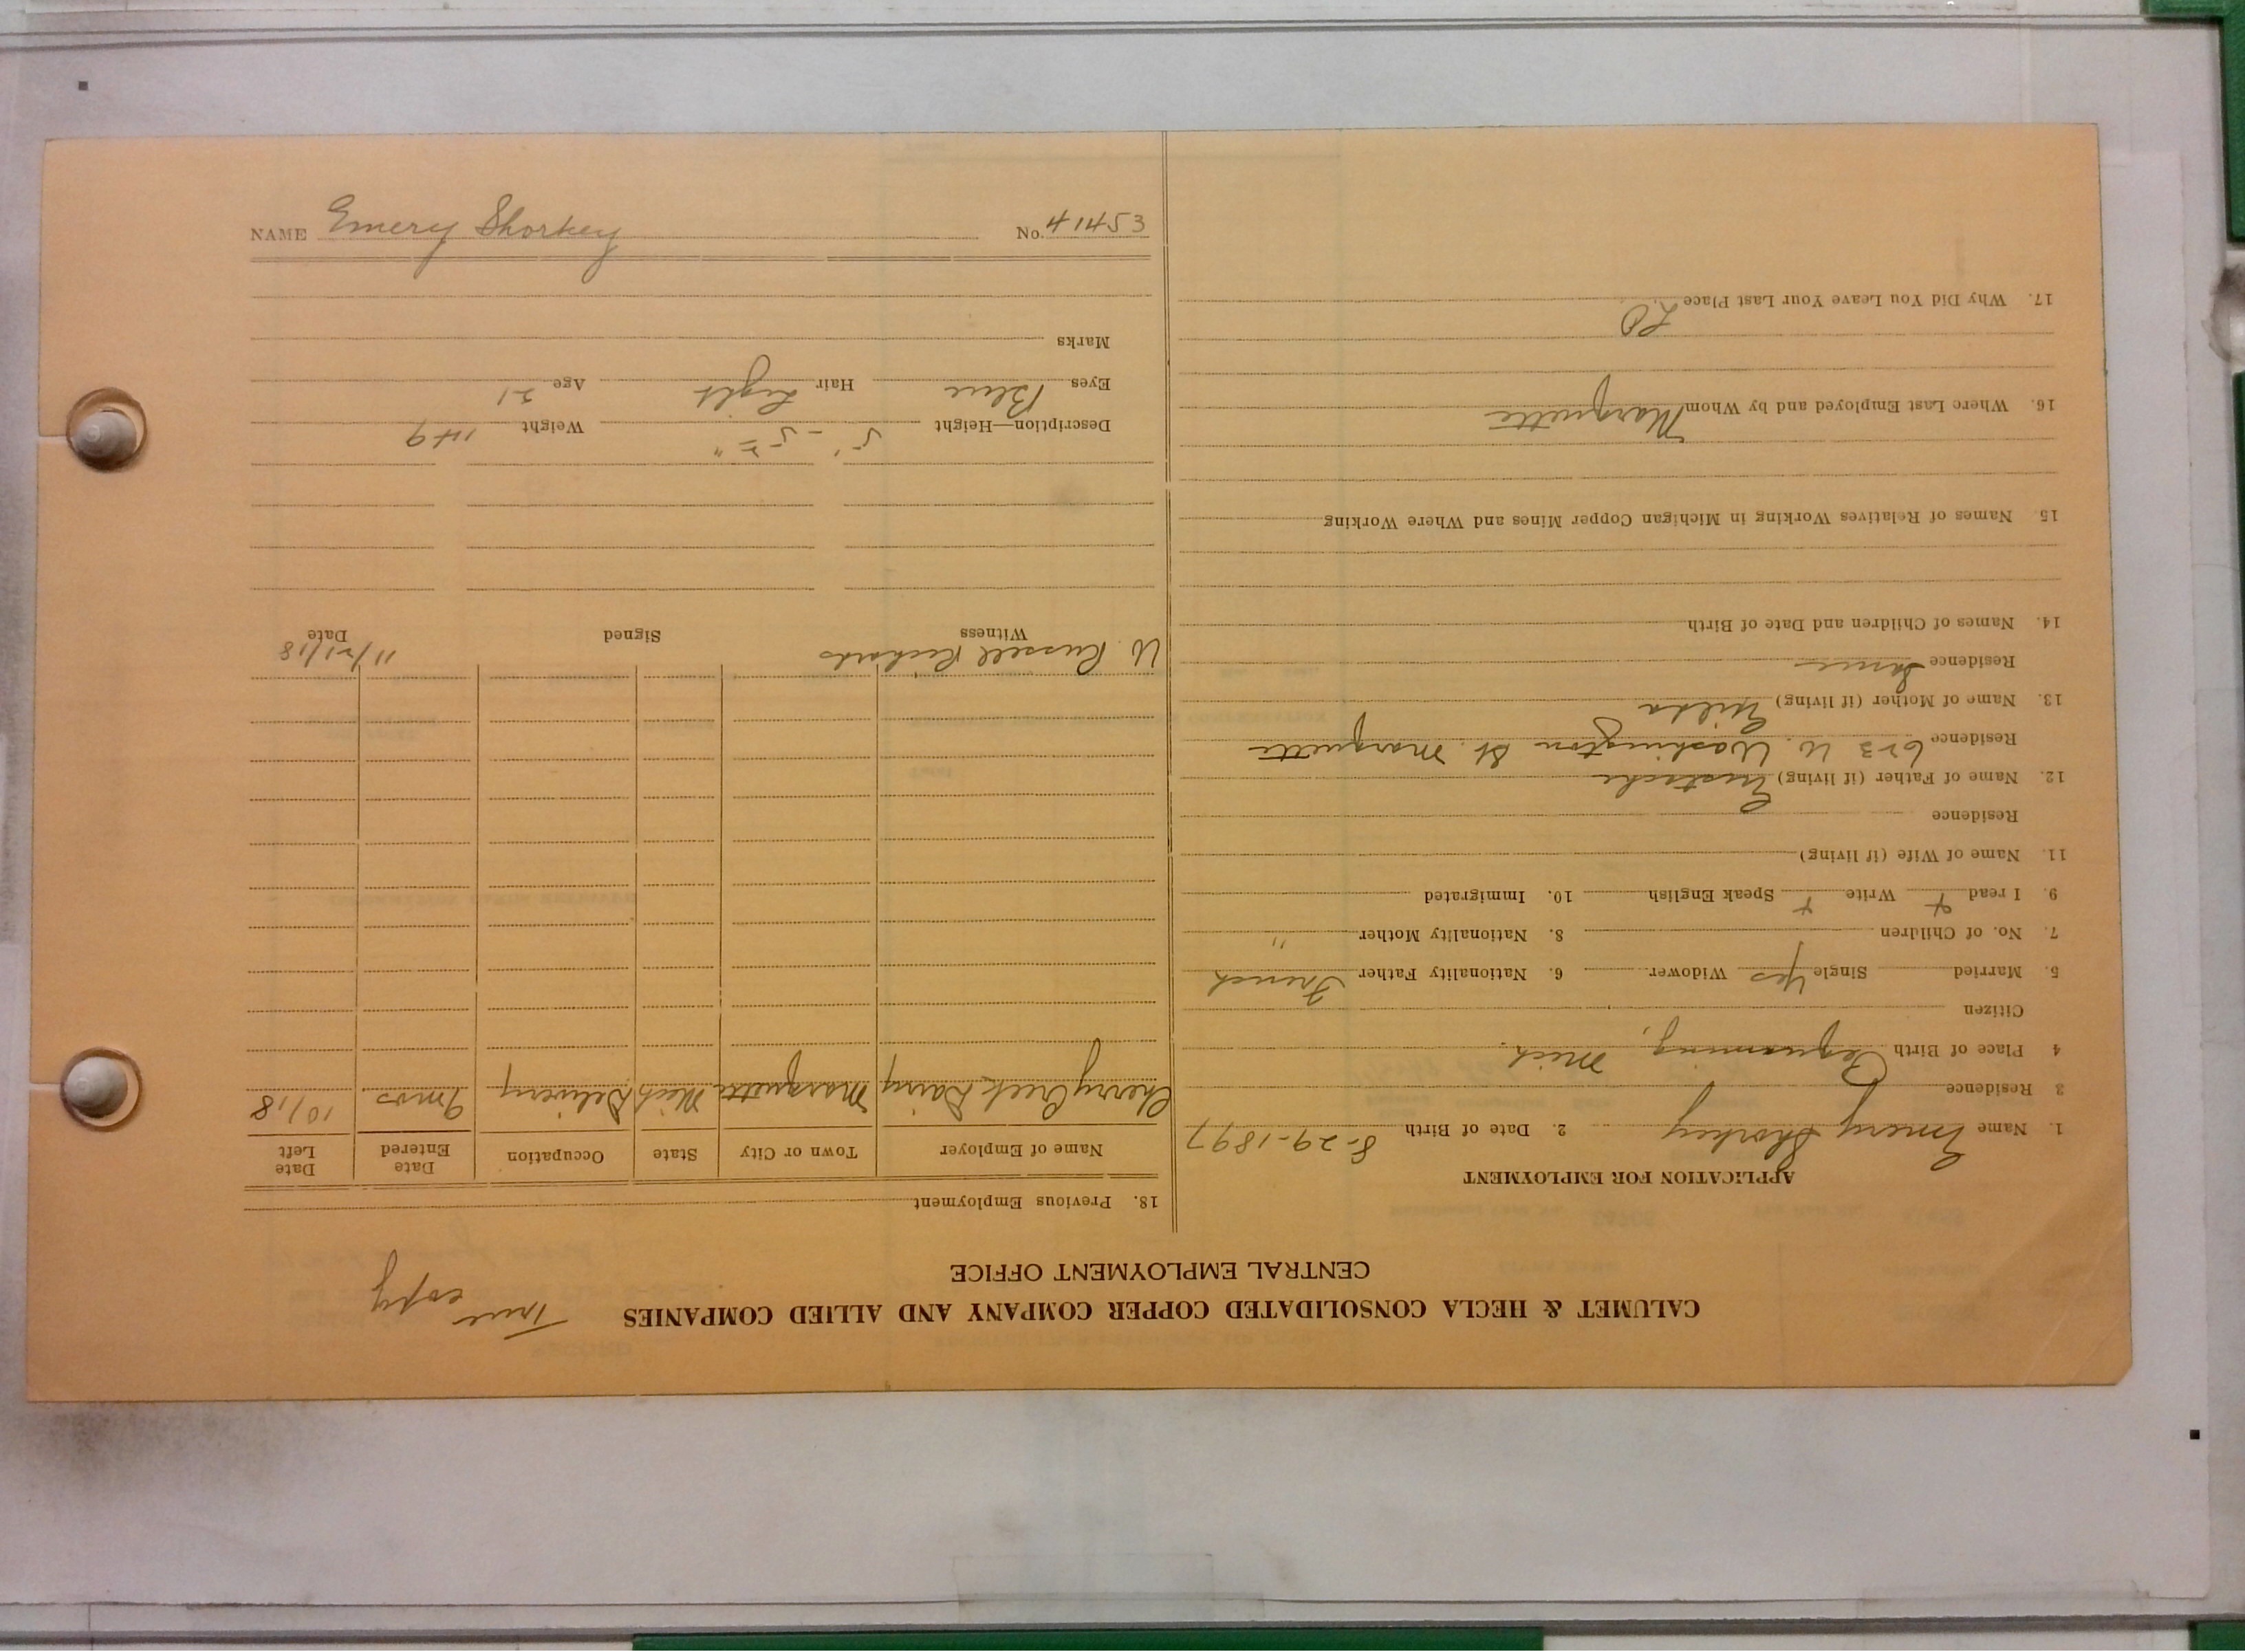 NAME Emery Shorkey No. 41453
CALUMET & HECLA CONSOLIDATED COPPER COMPANY AND ALLIED COMPANIES
True copy
CENTRAL EMPLOYMENT OFFICE
APPLICATION FOR EMPLOYMENT
1. Name Emery Shorkey 2. Date of Birth 8-29-1897
3 Residence
4 Place of Birth Pequaming, Mich.
Citizen
5. Married Single Yes Widower 6. Nationality Father French
7. No. of Children 8. Nationality Mother "
9. I read + Write + Speak English 10. Immigrated
11. Name of Wife (if living)
Residence
12. Name of Father (if living) Eustache
Residence 623 W. Washington St. Marquette
13. Name of Mother (if living)
Residence Same
14. Names of Children and Date of Birth
15. Names of Relatives Working in Michigan Copper Mines and Where Working
16. Where Last Employed and by Whom Marquette
17. Why Did You Leave Your Last Place LO
18. Previous Employment
Name of Employer Town or City State Occupation Date Entered Date Left
Cherry Creek Dairy Marquette Mich Delivery 9 mos 10/18
W. Russell Richards 11/21/18
Witness Signed Date
Description—Height 5' - 5 1/2" Weight 149
Eyes Blue Hair Light Age 21
Marks